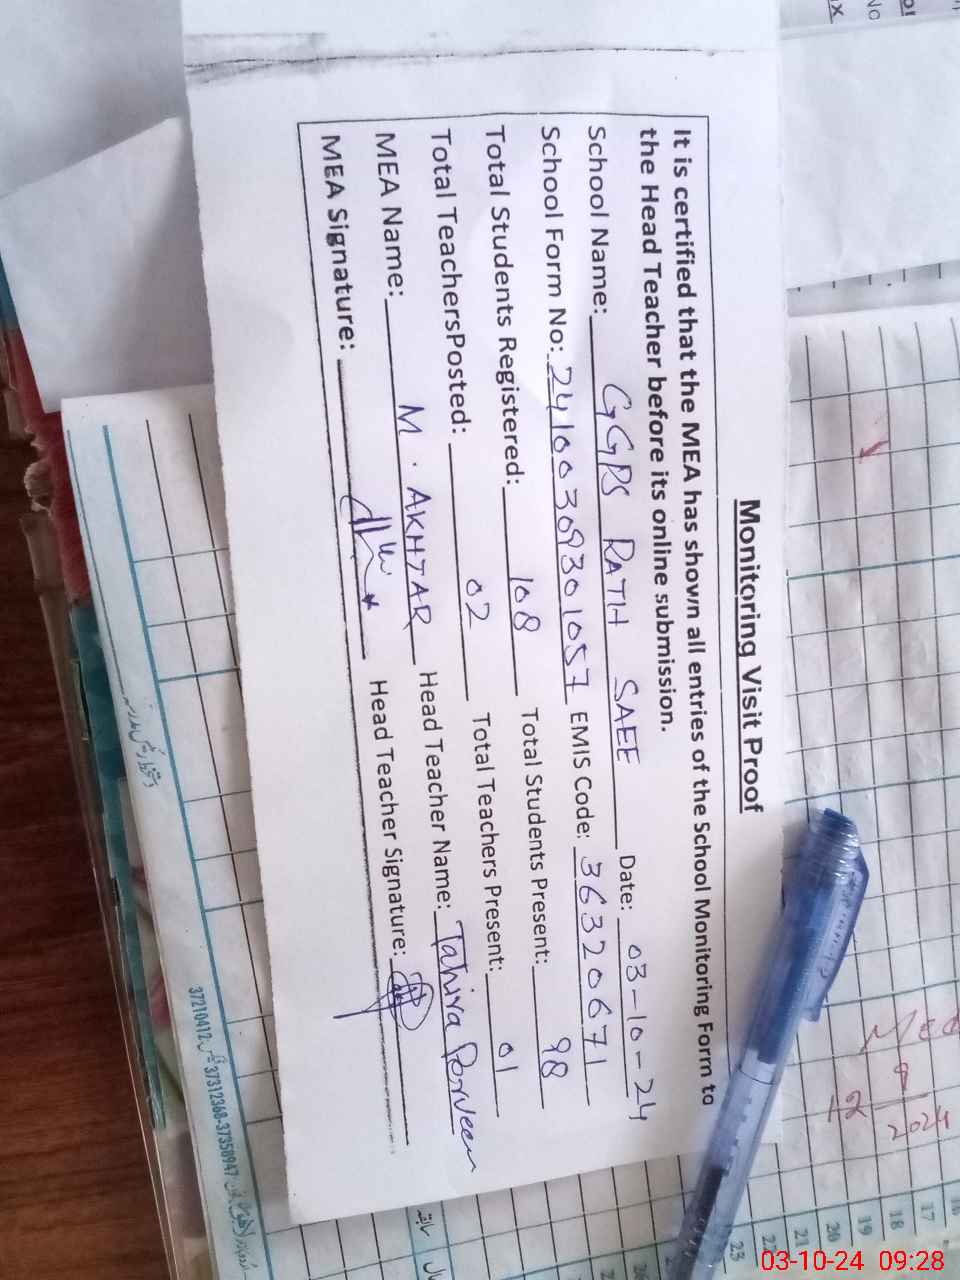 Monitoring Visit Proof
It is certified that the MEA has shown all entries of the School Monitoring Form to
the Head Teacher before its online submission.
School Name: GGPS RATH SAEE Date: 03-10-24
School Form No: 24100309301057 EMIS Code: 36320671
Total Students Registered: 108 Total Students Present: 98
Total TeachersPosted: 02 Total Teachers Present: 01
MEA Name: M. AKHTAR Head Teacher Name: Tahira Perveen
MEA Signature: Head Teacher Signature:
37210412 37312368-37350947
9
12 2024
16
17
18
19
20
21
22
23
03-10-24 09:28